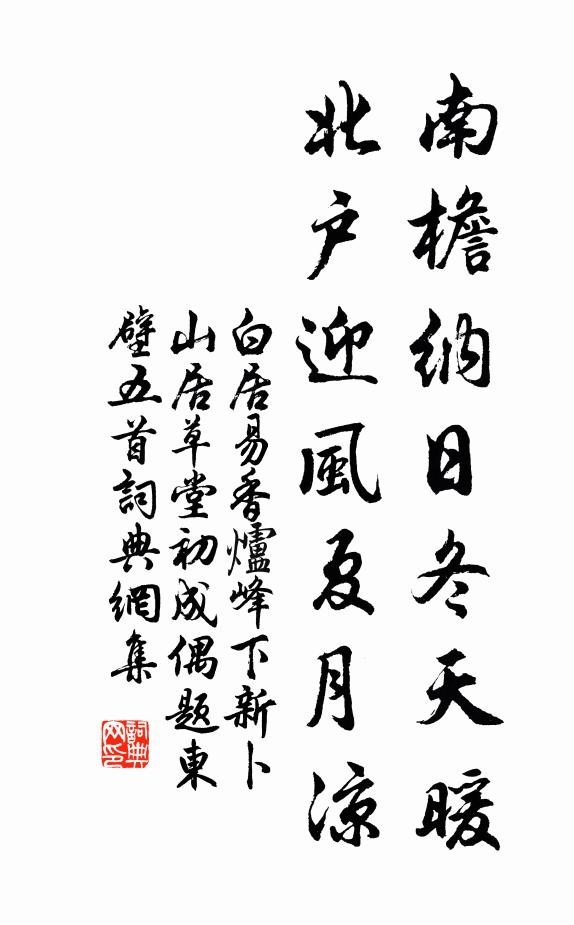 南檐納日冬天暖
北户迎風夏月涼
白居易香爐峰下新卜
山居草堂初成偶題東
壁五首詞典網集
詞典
网印